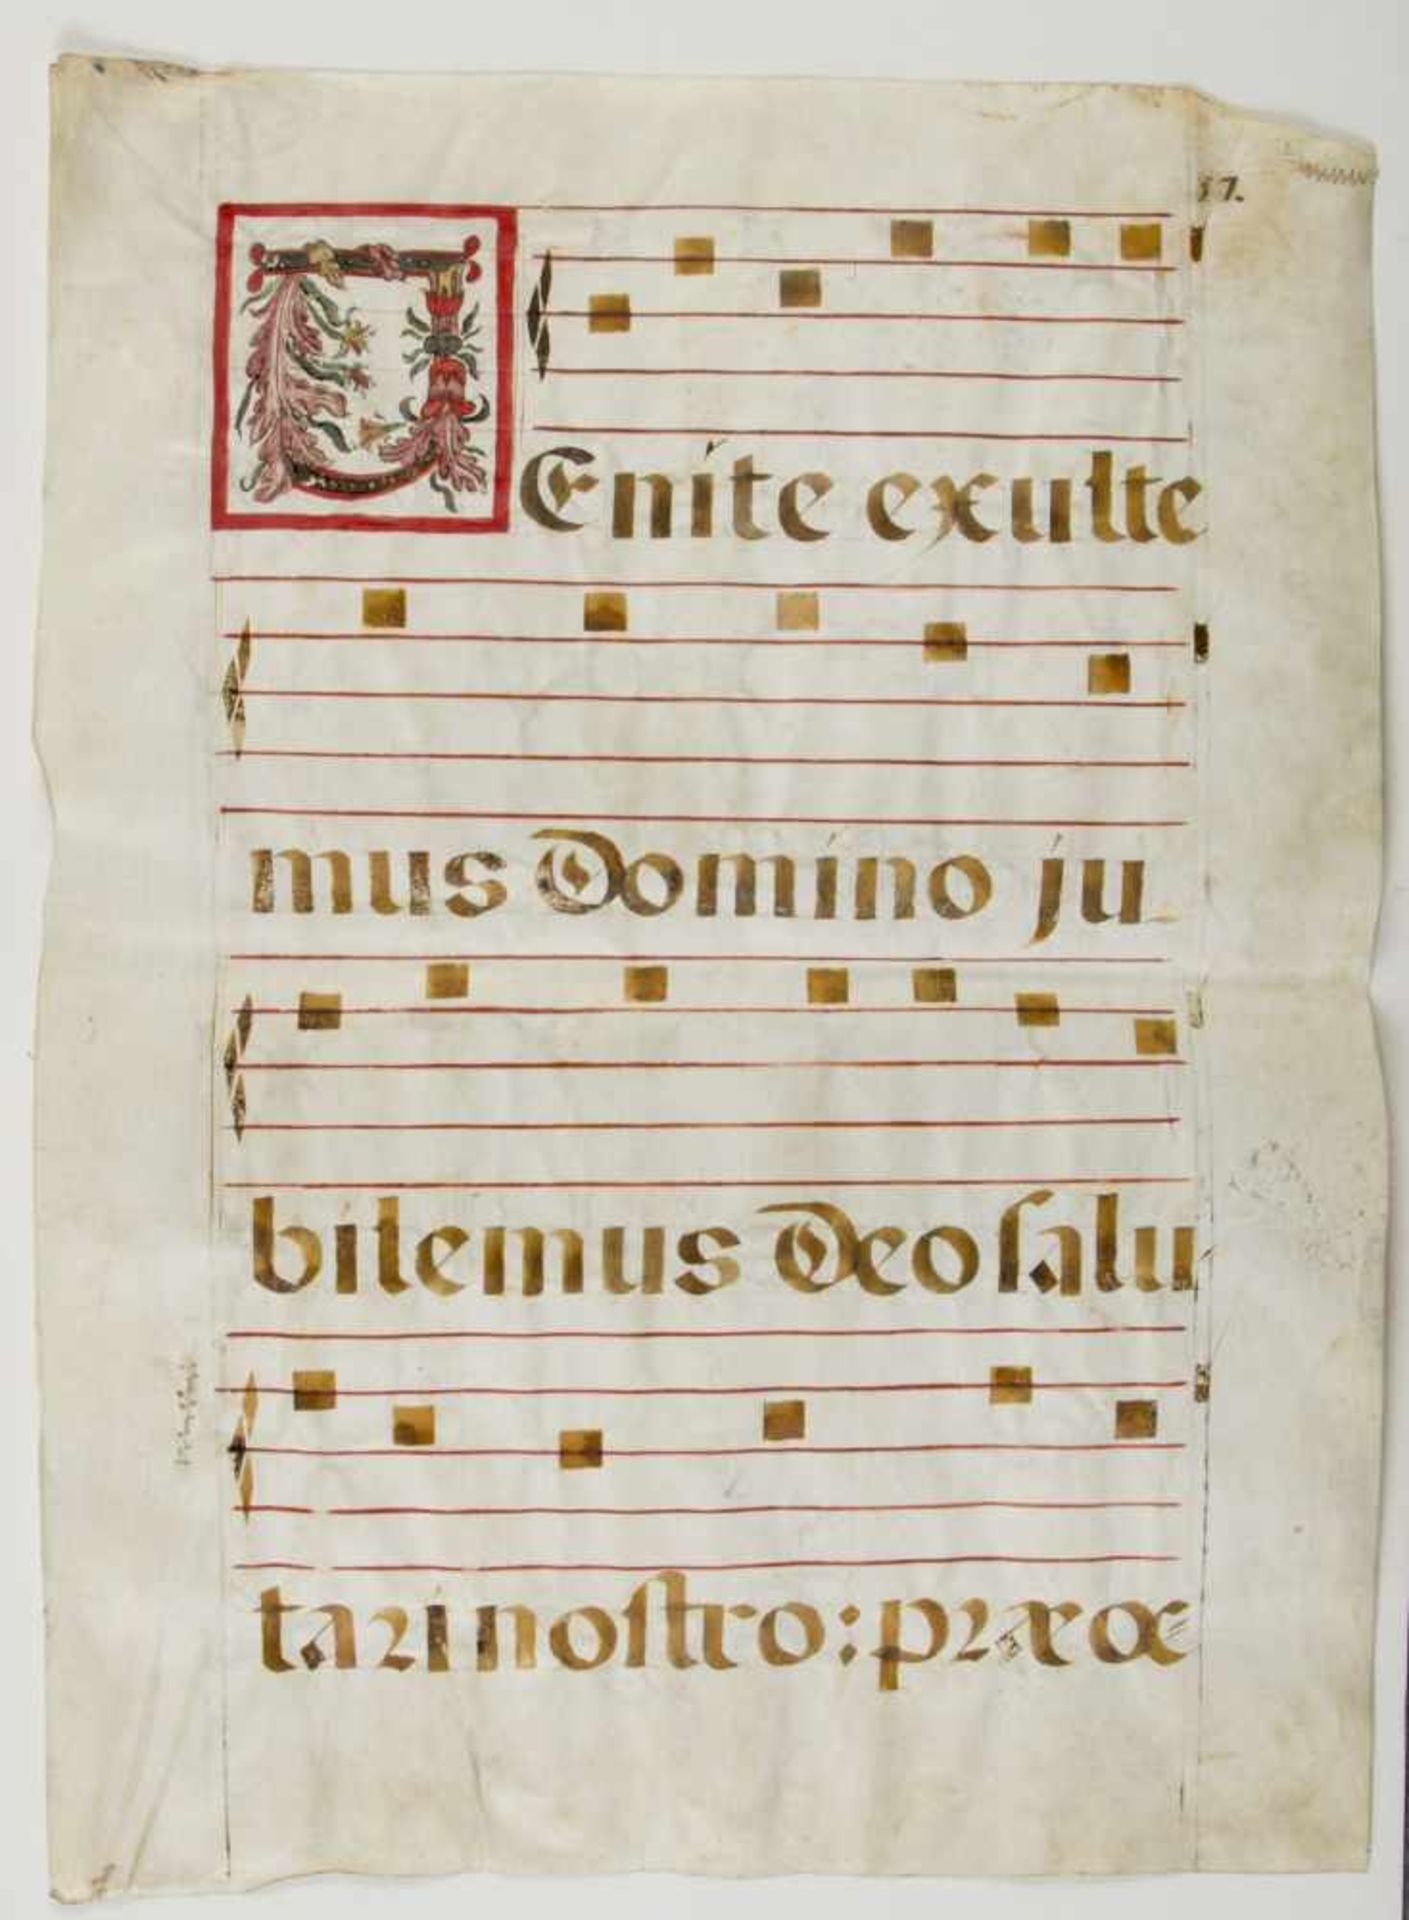 17.
VEnite exulte
mus Domino ju
bilemus Deo salu
tari nostro: præoc